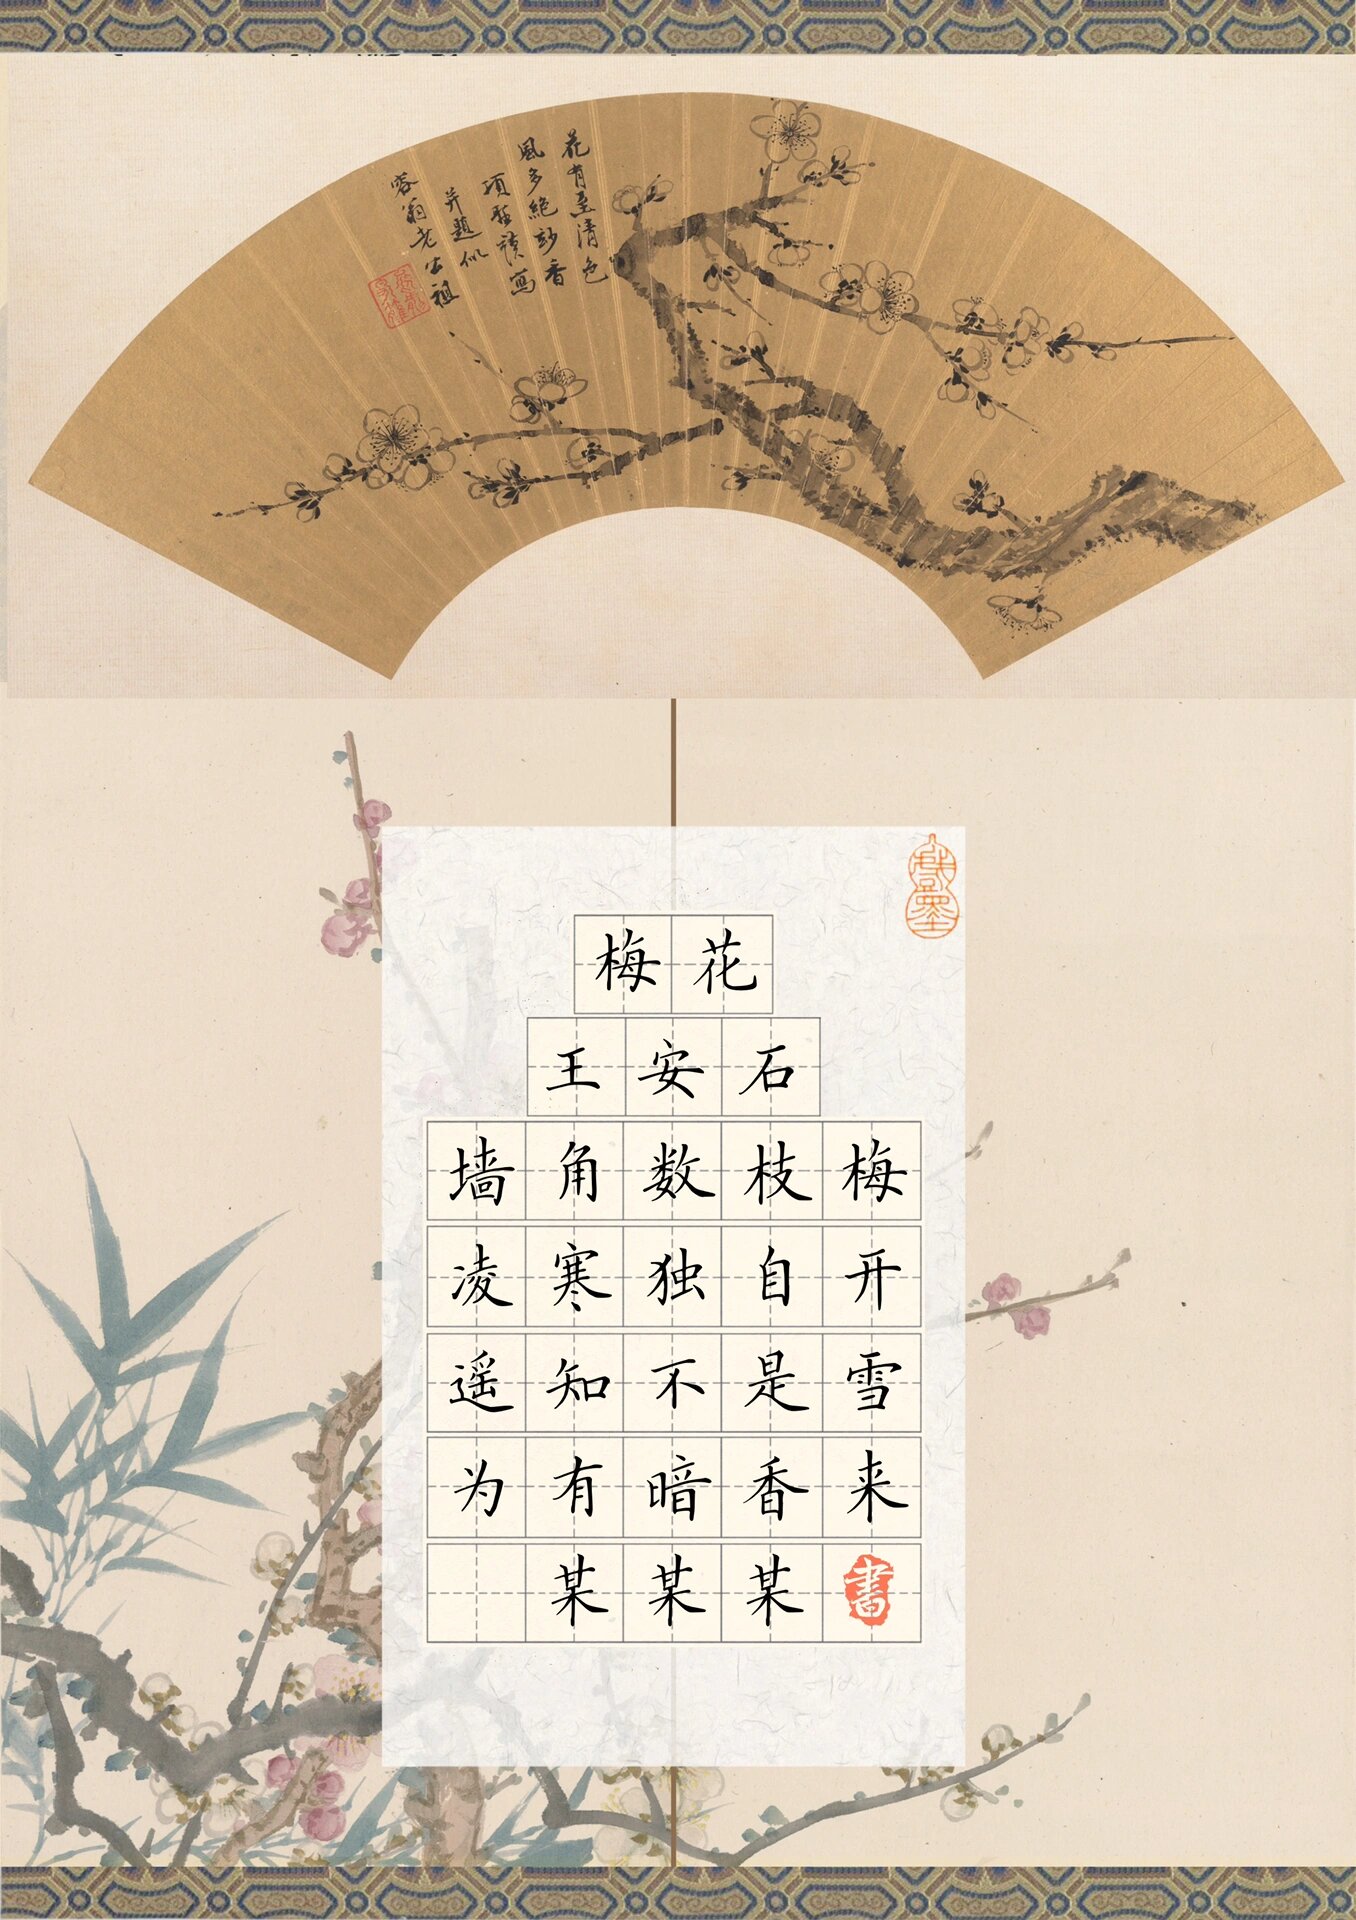 花有至清色
風多絕妙香
項聖謨寫
并題似
翁老公祖
梅花
王安石
墙角数枝梅
凌寒独自开
遥知不是雪
为有暗香来
某某某書